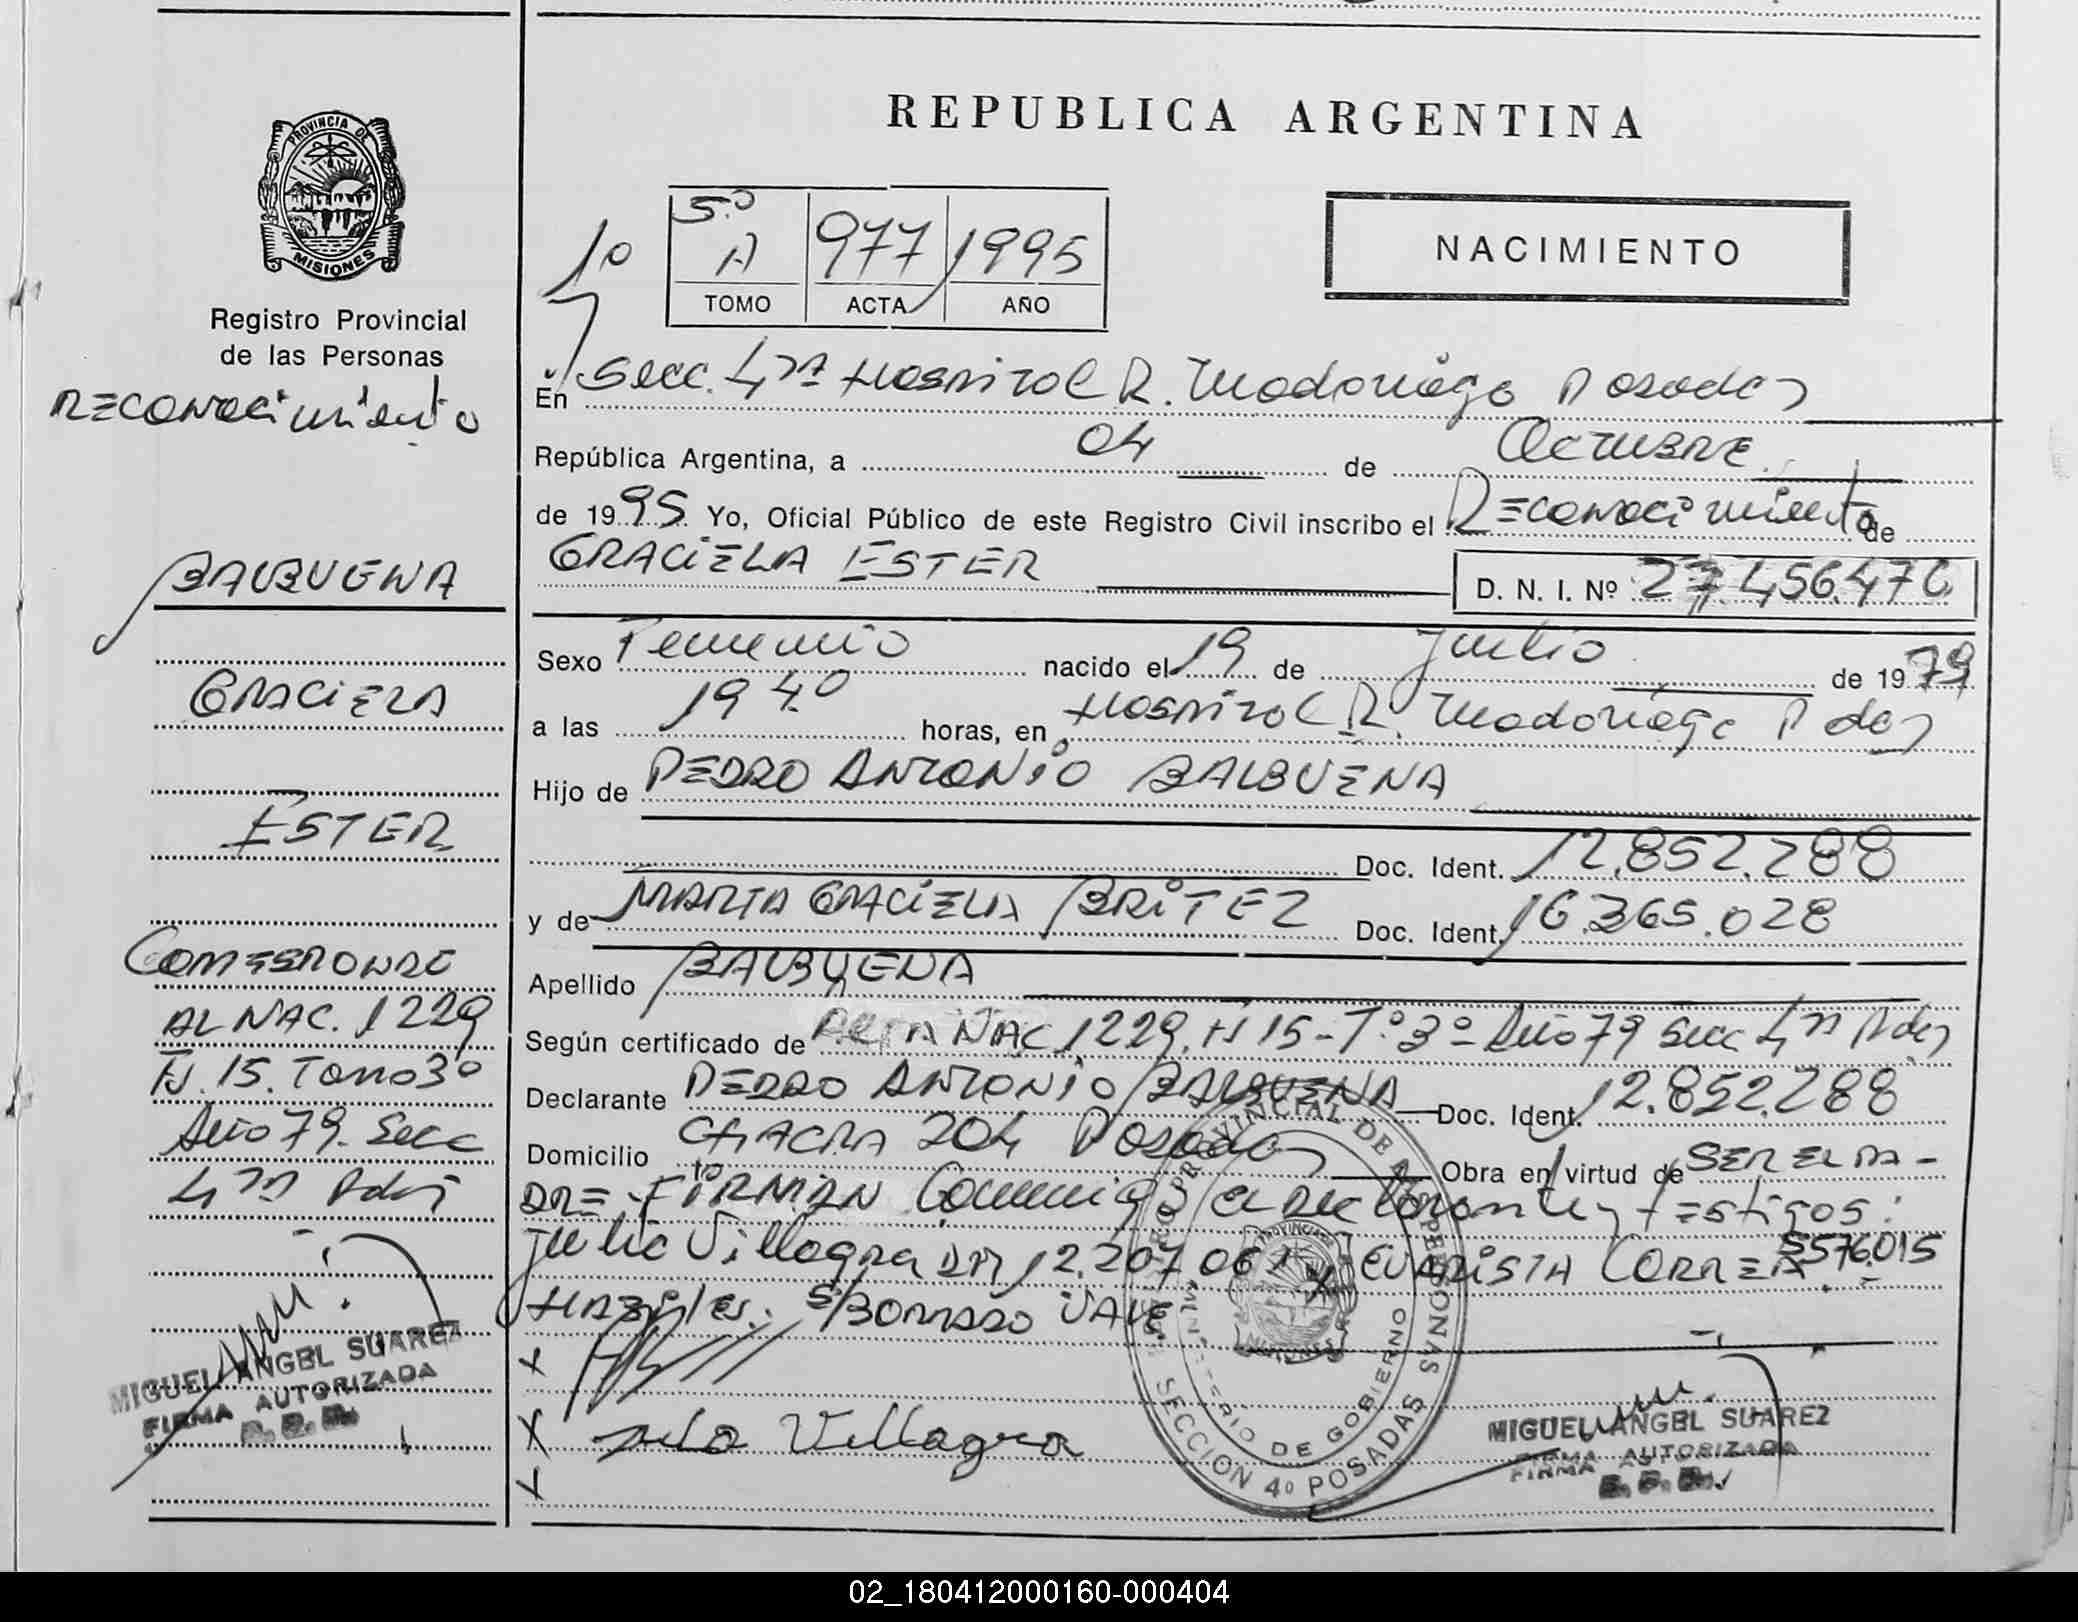 PROVINCIA DE
MISIONES
Registro Provincial
de las Personas
RECONOCIMIENTO
BALBUENA
GRACIELA
ESTER
CORRESPONDE
AL NAC. 1229
Fs. 15. Tomo 3º
Año 79. Secc
4ta Pdas
MIGUEL ANGEL SUAREZ
FIRMA AUTORIZADA
REPUBLICA ARGENTINA
NACIMIENTO
1º
5º
A 977 1995
TOMO ACTA AÑO
En Secc. 4ta Hospital R. Madariaga Posadas
República Argentina, a 04 de Octubre
de 1995 Yo, Oficial Público de este Registro Civil inscribo el Reconocimiento de
GRACIELA ESTER D. N. I. Nº 27.456.470
Sexo Femenino nacido el 19 de Julio de 1979
a las 19 40 horas, en Hospital R. Madariaga Pdas
Hijo de PEDRO ANTONIO BALBUENA
Doc. Ident. 12.852.288
y de MARTA GRACIELA BRITEZ Doc. Ident. 16.365.028
Apellido BALBUENA
Según certificado de ACTA NAC 1229. Fs 15 - Tº 3º - Año 79 Secc 4ta Pdas
Declarante PEDRO ANTONIO BALBUENA Doc. Ident. 12.852.288
Domicilio CHACRA 204 Posadas Obra en virtud de SER EL PA-
DRE - FIRMAN Conmigo el declarante y testigos:
Julio Villagra DNI 12.207.061 y EVARISTA CORREA 5576.015
HABILES. S/BORRADO VALE
X
X Julio Villagra
X
REGISTRO PROVINCIAL DE LAS PERSONAS
MINISTERIO DE GOBIERNO
SECCION 4º POSADAS
MIGUEL ANGEL SUAREZ
FIRMA AUTORIZADA
02_180412000160-000404